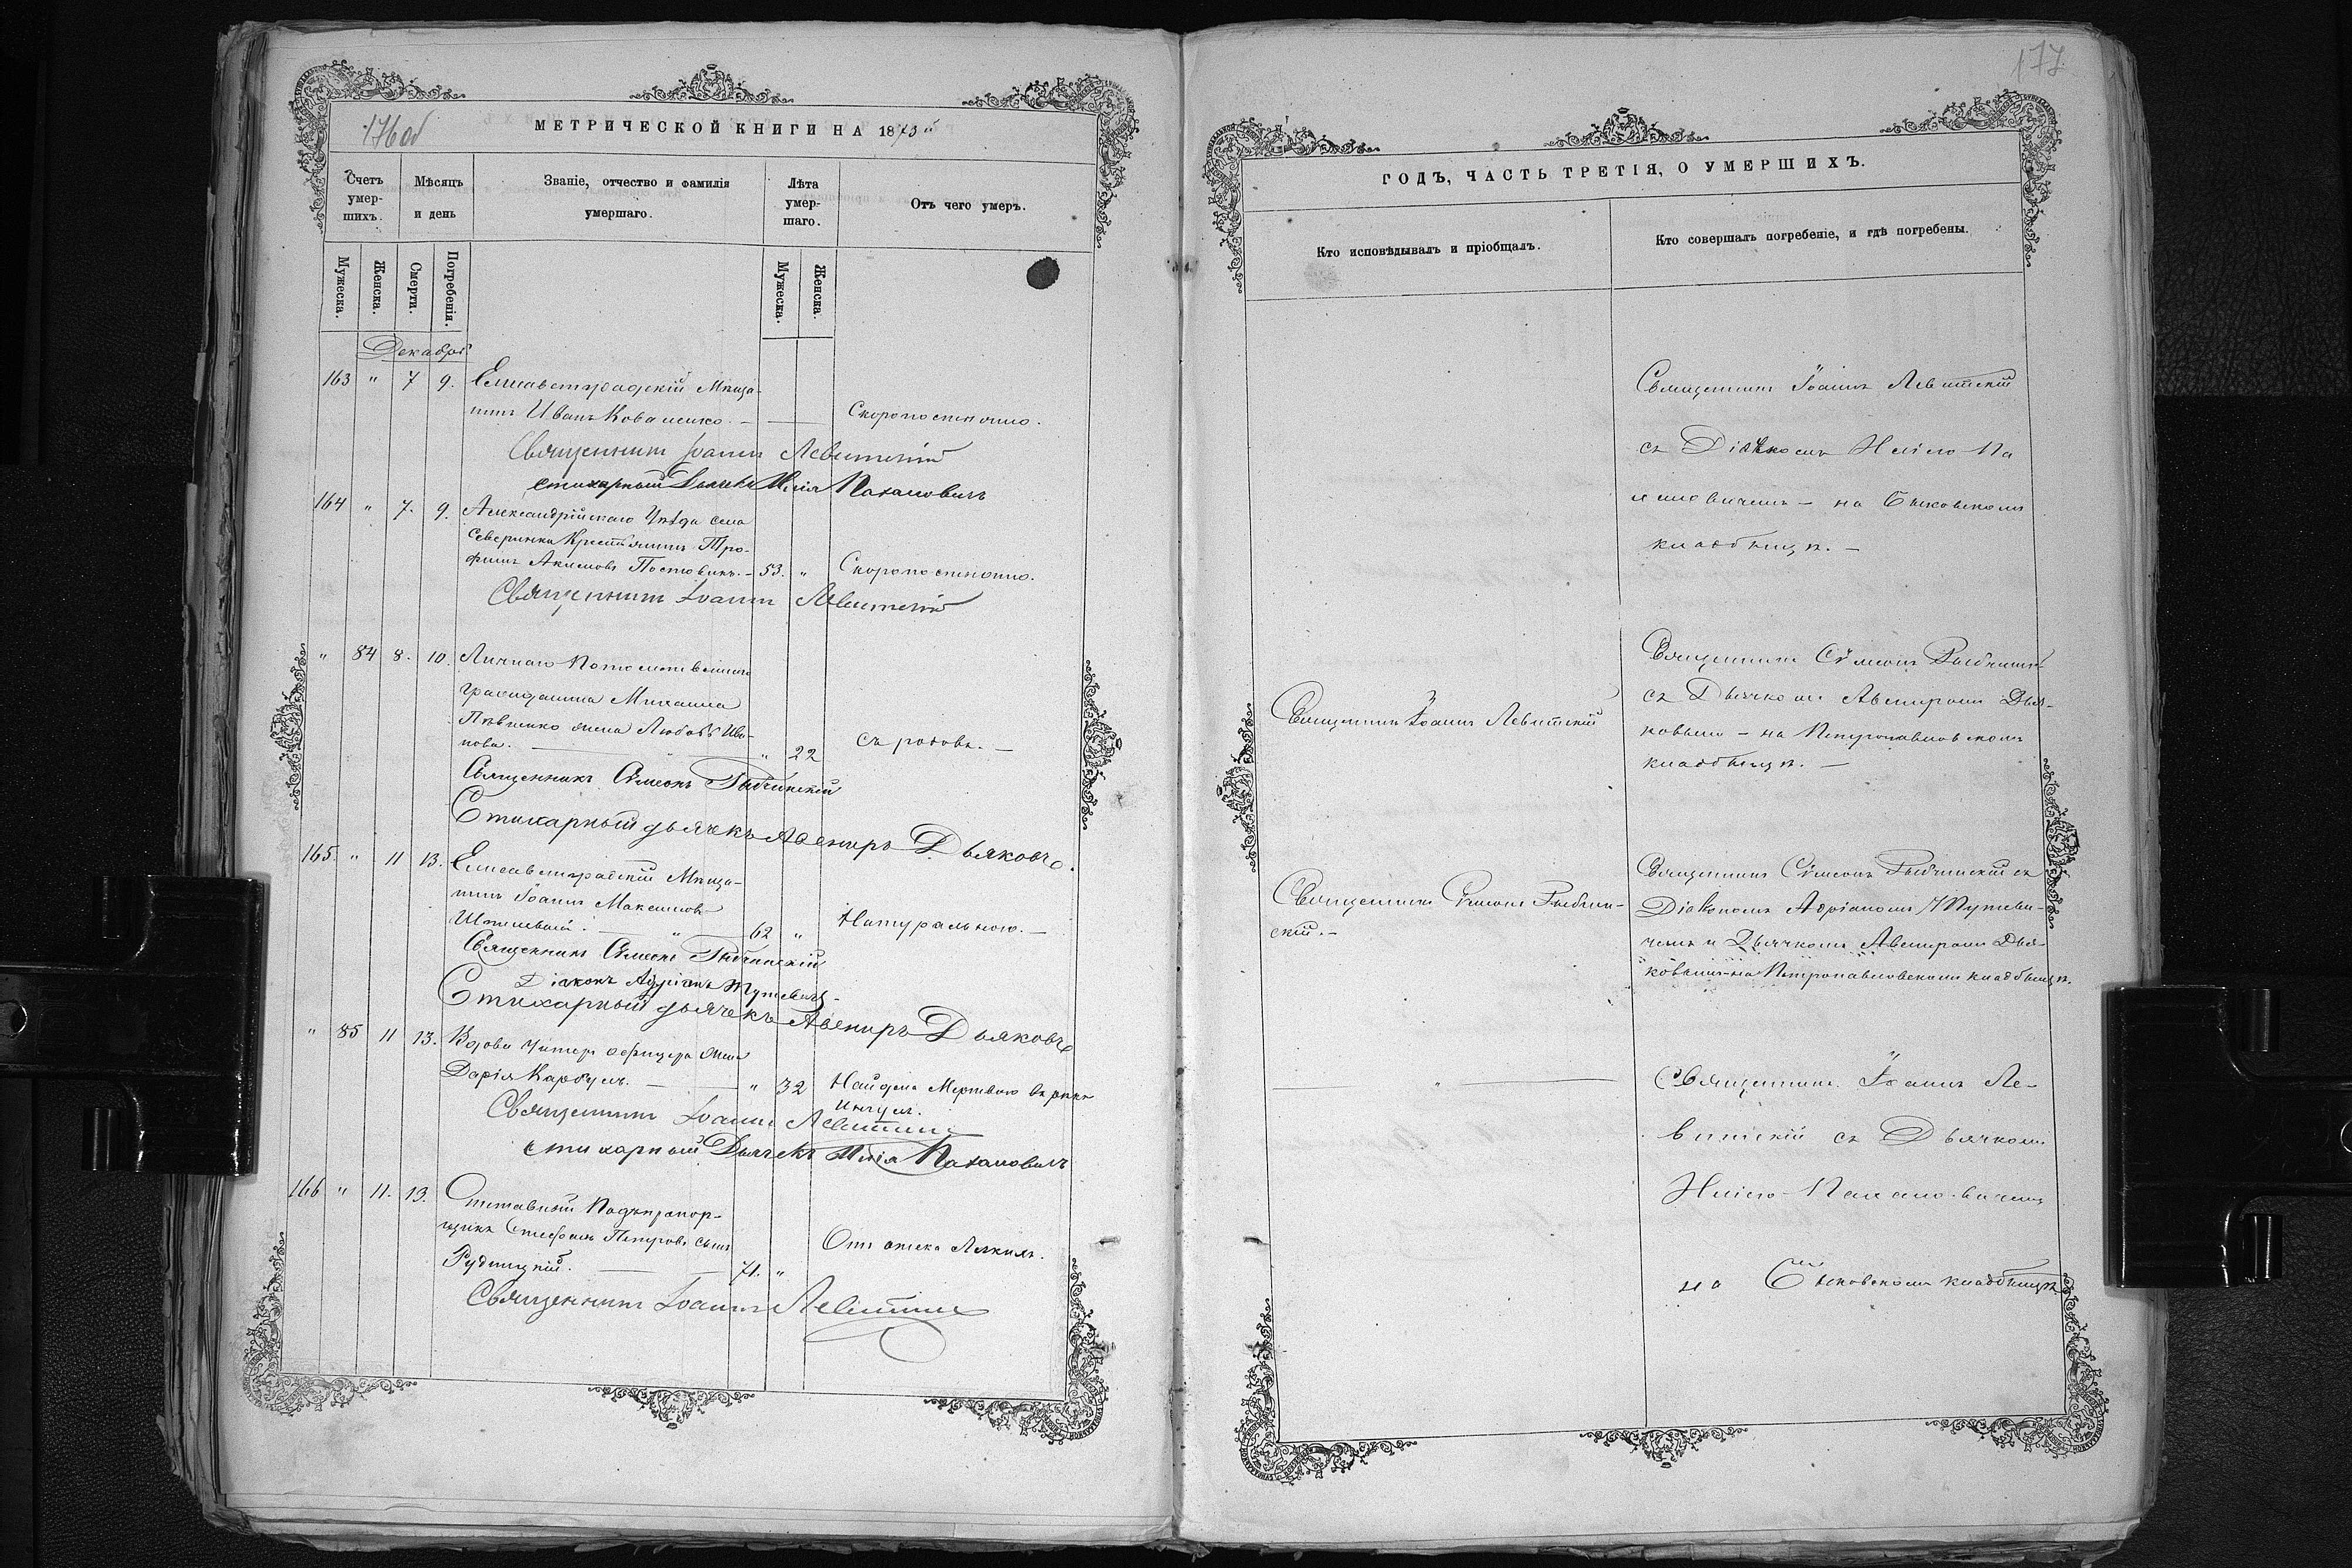 176об
МЕТРИЧЕСКОЙ КНИГИ НА 1873й
Счетъ умер-шихъ.
Мѣсяцъ и день
Званіе, отчество и фамилія умершаго.
Лѣта умер-шаго.
Отъ чего умеръ.
Мужеска.
Женска.
Смерти.
Погребенія.
Мужеска.
Женска.
Декабрь
163 " 7 9. Елисаветградскій Мѣща-
нинъ Иванъ Коваленко. — Скоропостижно.
Священникъ Іоаннъ Левитскій
стихарный Дьячекъ Илія
164 " 7. 9. Александрійскаго Уѣзда села
Северинки Крестьянинъ Тро-
фимъ Акимовъ Постовикъ. — 53. " Скоропостижно.
Священникъ Іоаннъ Левитскій
" 84 8. 10. Личнаго Потомственнаго
гражданина Михаила
жена Любовь Ива-
нова. — " 22 съ родовъ. —
Священникъ Сѵмеонъ Рыбчинскій
Стихарный дьячекъ Авениръ Дьяковъ.
165. " 11 13. Елисаветградскій Мѣща-
нинъ Іоаннъ Максимовъ
— " — 62 " Натуральною. —
Священникъ Сѵмеонъ Рыбчинскій
Діаконъ Адріанъ
Стихарный дьячекъ Авениръ Дьяковъ
" 85 11 13. Вдова Унтеръ офицера жена
Дарія Карбулъ. — " 32 Найдена Мертвою въ рѣкѣ
Ингулѣ.
Священникъ Іоаннъ Левитскій
стихарный Дьячекъ Илія
166 " 11. 13. Отставный Подпрапор-
щикъ Стефанъ Петровъ сынъ
Рудницкій. — 71. " Отъ отека Легкихъ.
Священникъ Іоаннъ Левитскій
177
ГОДЪ, ЧАСТЬ ТРЕТІЯ, О УМЕРШИХЪ.
Кто исповѣдывалъ и пріобщалъ.
Кто совершалъ погребеніе, и гдѣ погребены.
Священникъ Іоаннъ Левитскій
съ Дьячкомъ Иліею Па
на Быковскомъ
кладбищѣ. —
Священникъ Іоаннъ Левитскій
Священникъ Сѵмеонъ Рыбчинскій
съ Дьячкомъ Авениромъ Дья-
ковымъ – на Петропавловскомъ
кладбищѣ. —
Священникъ Сѵмеонъ Рыбчин-
скій. —
Священникъ Сѵмеонъ Рыбчинскій съ
Діакономъ Адріаномъ
чемъ и Дьячкомъ Авениромъ Дья-
ковымъ – на Петропавловскомъ кладбищѣ.
— " —
Священникъ Іоаннъ Ле-
витскій съ Дьячкомъ
Иліею
на Быковскомъ кладбищѣ